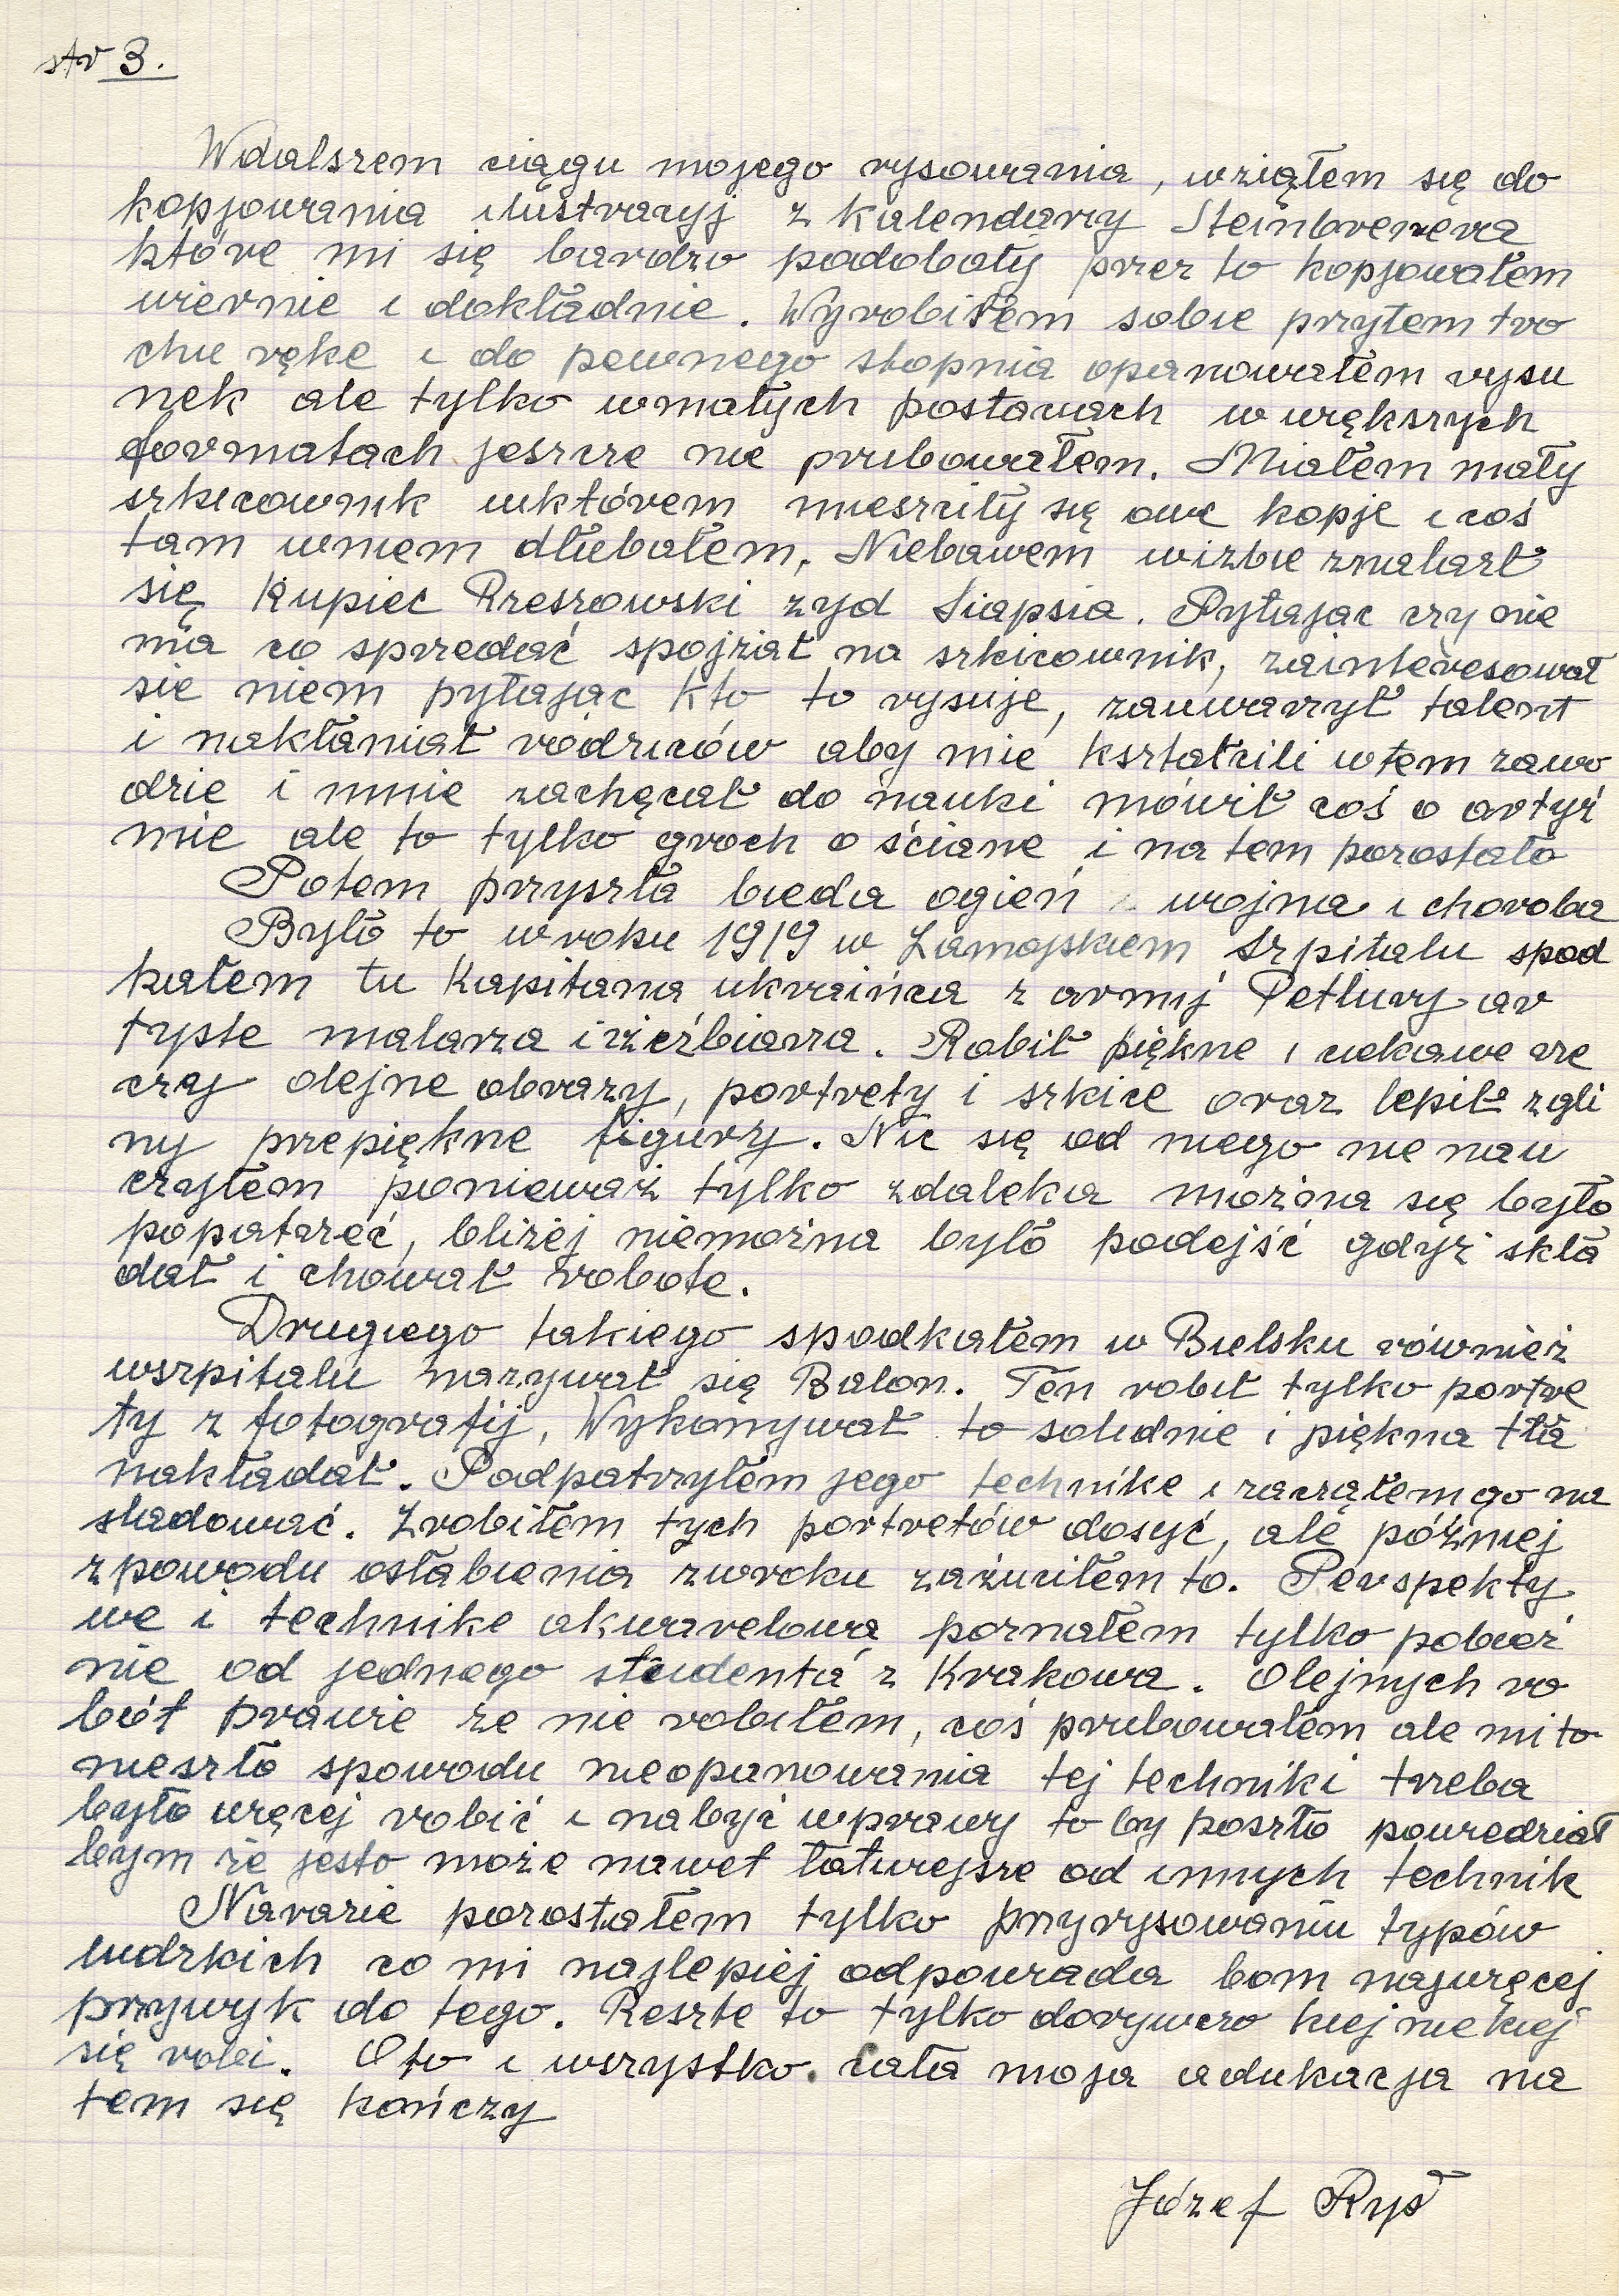 str 3.
Wdalszem ciągu mojego rysowania, wziąłem się do
kopjowania ilustracyj z kalendarzy Steinbrenera
które mi się bardzo podobały przez to kopjowałem
wiernie i dokładnie. Wyrobiłem sobie przytem tro
chu ręke i do pewnego stopnia opanowałem rysu
nek ale tylko wmałych postaciach w większych
formatach jeszcze nie prubowałem. Miałem mały
szkicownik wktórem mieszciły się owe kopje i coś
tam wniem dłubałem. Niebawem wizbie znalazł
się kupiec Rzeszowski żyd Siapsia. Pytając czy nie
ma co sprzedać spojżał na szkicownik, zainteresował
sie niem pytając kto to rysuje, zauważył talent
i nakłaniał ródziców aby mie kształcili wtem zawo
dzie i mnie zachęcał do nauki mówił coś o artyź
mie ale to tylko groch o ściane i na tem pozostało
Potem przyszła bieda ogień wojna i choroba
Było to w roku 1919 w Zamojskiem szpitalu spod
kałem tu kapitana ukraińca z armij Petlury ar
tyste malarza i żeźbiarza. Robił piękne i ciekawe rze
czy olejne obrazy, portrety i szkice oraz lepił zgli
ny przepiękne figury. Nic się od niego nie nau
czyłem ponieważ tylko zdaleka można się było
popatrzeć, bliżej niemożna było podejść gdyż skła
dał i chował robote.
Drugiego takiego spodkałem w Bielsku również
wszpitalu nazywał się Balon. Ten robił tylko portre
ty z fotografij, Wykonywał to solidnie i piękna tła
nakładał. Podpatrzyłem jego technike i zacząłem go na
śladować. Zrobiłem tych portretów dosyć, ale póżniej
zpowodu osłabienia zwroku zażuciłem to. Perspekty
we i technike akwarelową poznałem tylko pobież
nie od jednego studenta z Krakowa. Olejnych ro
bót prawie że nie robiłem, coś prubowałem ale mi to
nieszło spowodu nieopanowania tej techniki trzeba
było więcej robić i nabyć wprawy to by poszło powiedział
bym że jesto może nawet łatwiejsze od innych technik
Narazie pozostałem tylko przyrysowaniu typów
ludzkich co mi najlepiej odpowiada bom najwięcej
przywyk do tego. Reszte to tylko dorywczo kiej niekiej
się robi. Oto i wszystko. cała moja edukacja na
tem się kończy
Józef Ryś